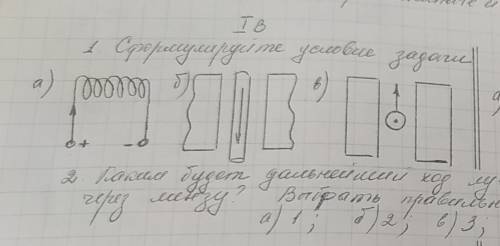 I в
1 Сформулируйте условие задачи
а) б) в)
+ -
2 Каким будет дальнейший ход лу-
через линзу? Выбрать правильн
а) 1; б) 2; в) 3;